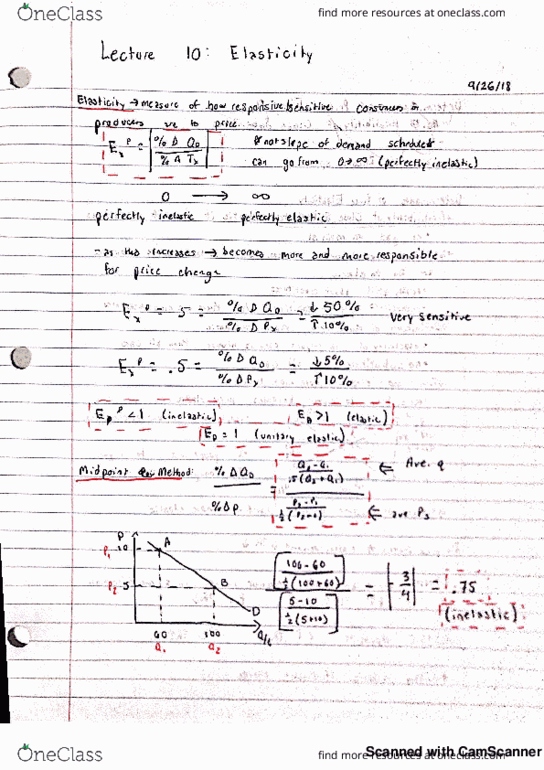 OneClass
find more resources at oneclass.com
Lecture 10: Elasticity
9/26/18
Elasticity → measure of how responsive/sensitive consumers or
producers are to price
E_x^P = |% Δ Q_D / % Δ P_x|
*not slope of demand schedule
can go from 0 → ∞ (perfectly inelastic)
0 → ∞
perfectly inelastic perfectly elastic
- as this increases → becomes more and more responsible
for price change
E_x^P = 5 = % Δ Q_D / % Δ P_x = ↓50% / ↑10% Very sensitive
E_x^P = .5 = % Δ Q_D / % Δ P_x = ↓5% / ↑10%
E_P^P < 1 (inelastic) E_D > 1 (elastic)
E_D = 1 (unitary elastic)
Midpoint Method: % Δ Q_D / % Δ P = (Q_2 - Q_1 / .5(Q_2 + Q_1)) / (P_2 - P_1 / ½(P_2 + P_1))
← Ave. q
← ave P_s
P
P_1 10 A
P_2 5 B
D
60 100 Q/t
Q_1 Q_2
[100-60 / ½(100+60)] / [5-10 / ½(5+10)] = |-3/4| = .75
(inelastic)
OneClass
find more resources at oneclass.com
Scanned with CamScanner